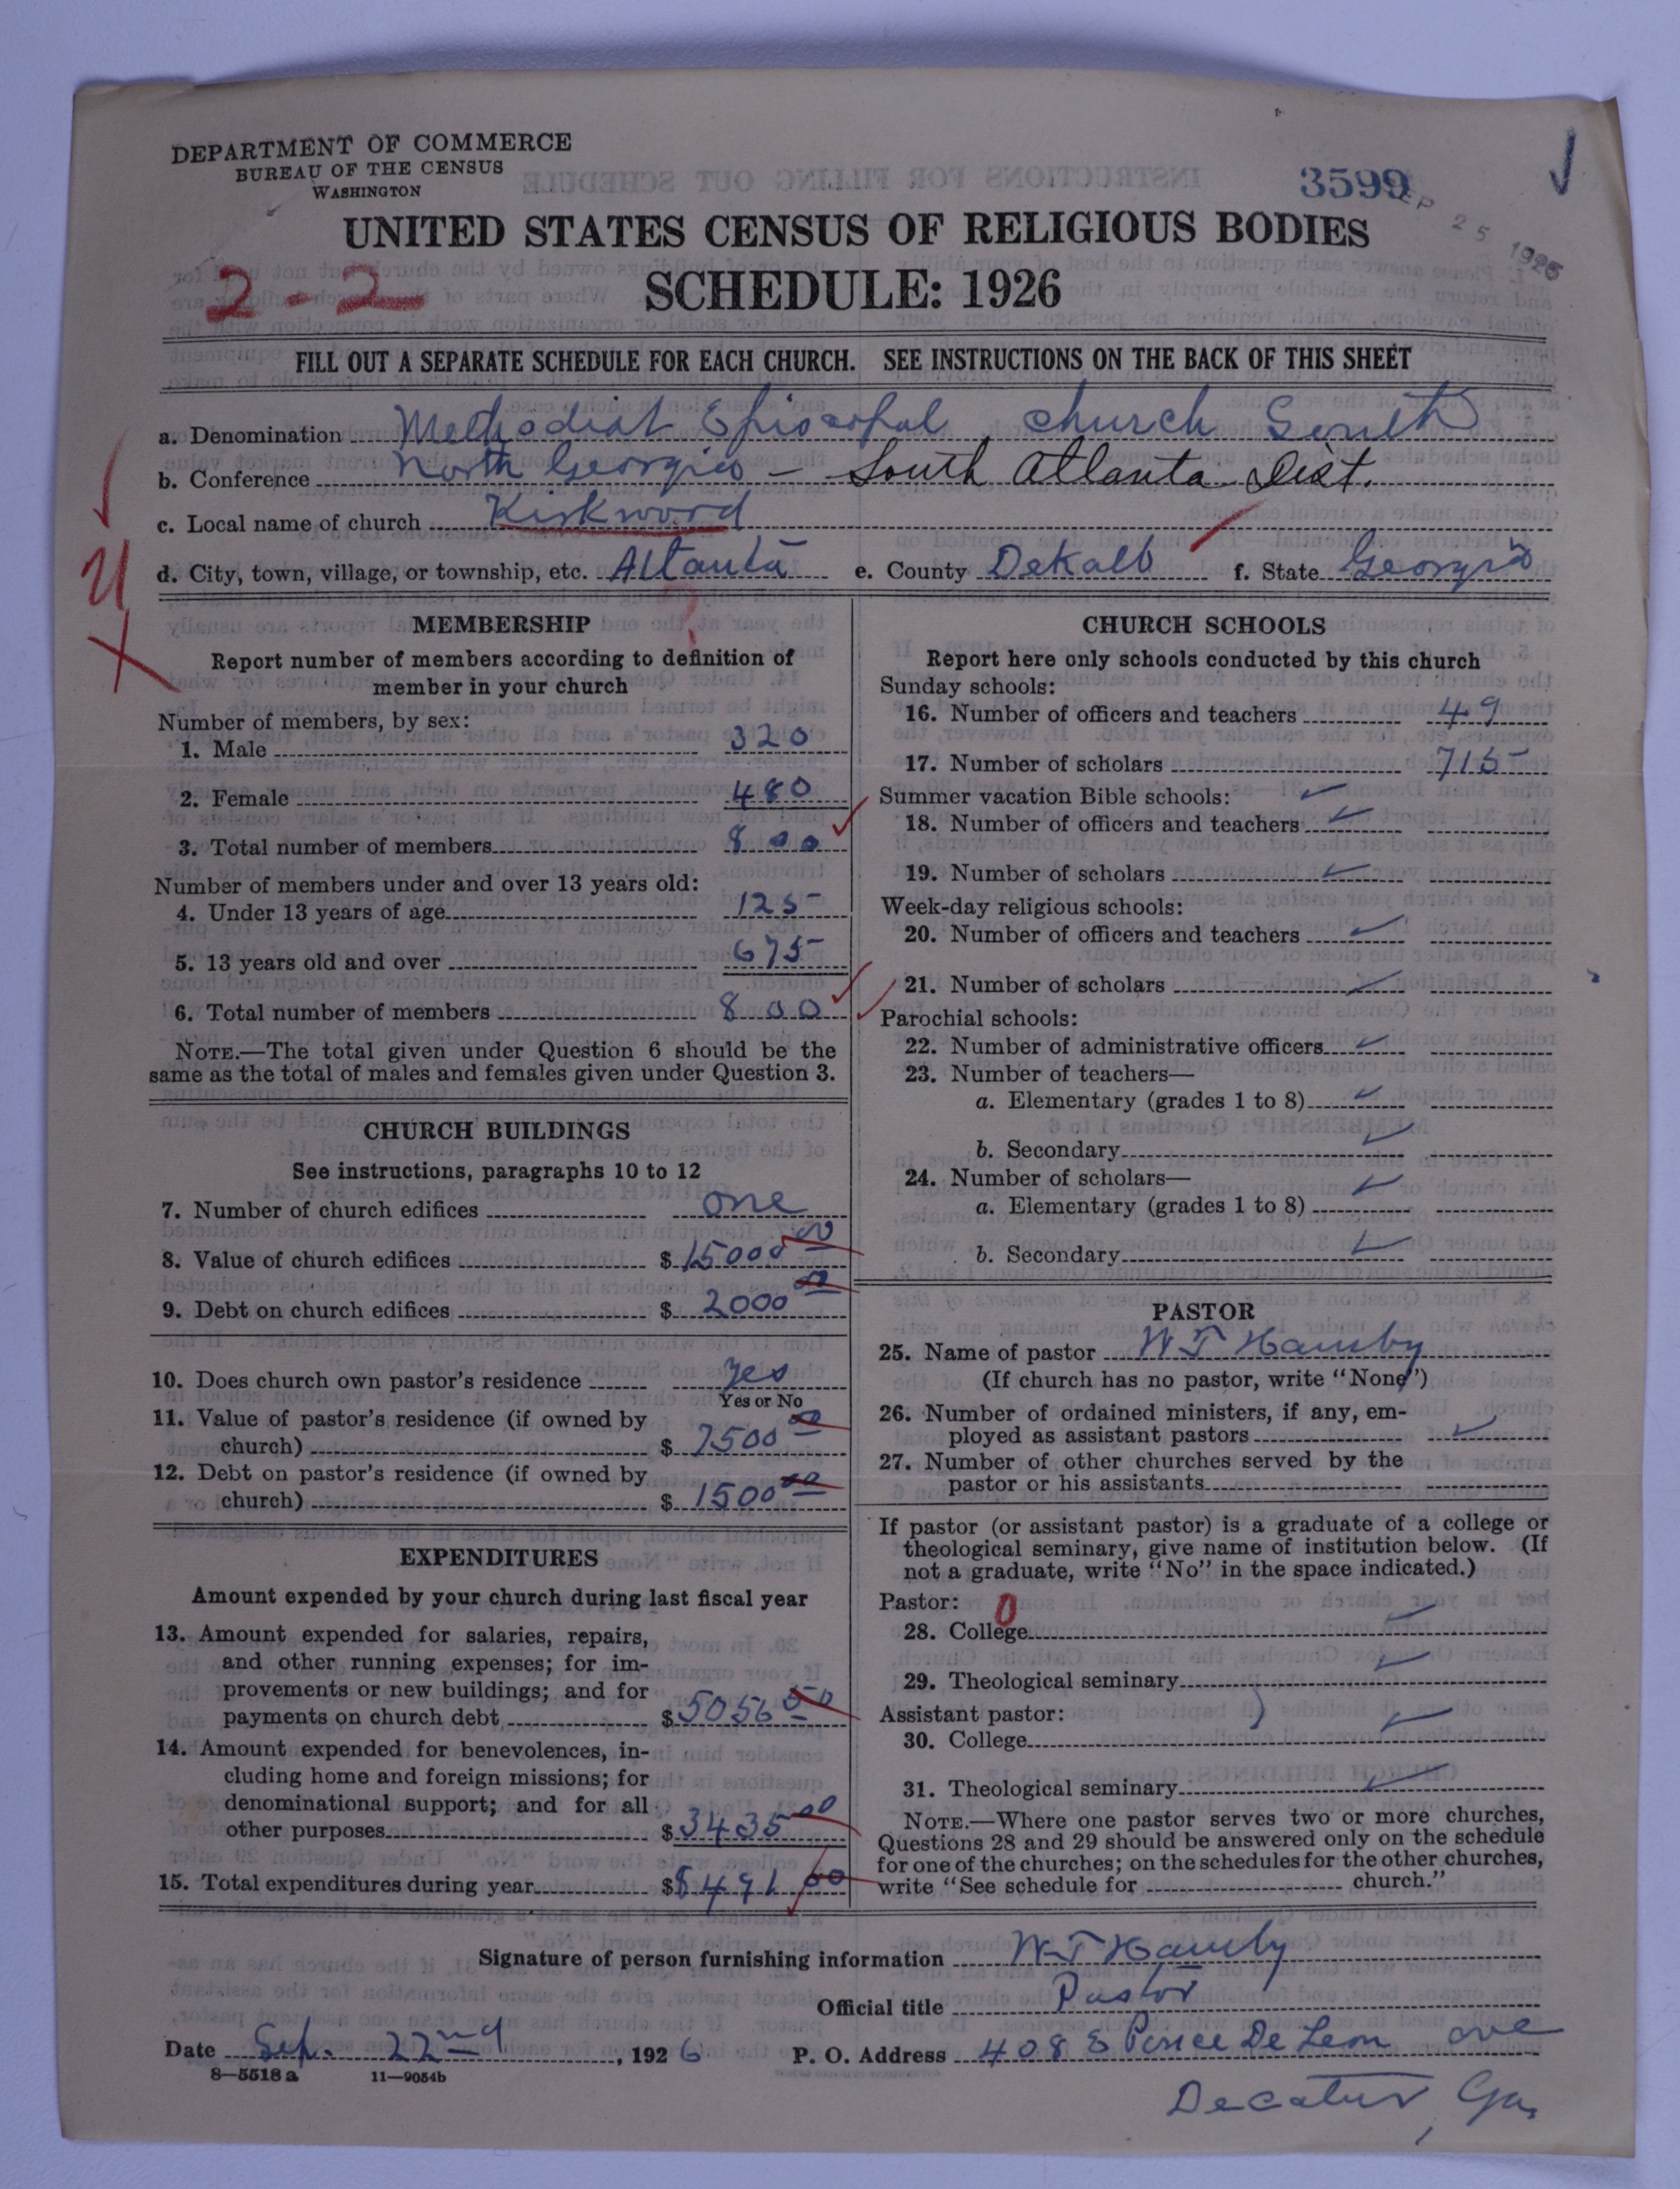 DEPARTMENT OF COMMERCE
BUREAU OF THE CENSUS
WASHINGTON
3599
SEP 25 1926
UNITED STATES CENSUS OF RELIGIOUS BODIES
2-2
SCHEDULE: 1926
FILL OUT A SEPARATE SCHEDULE FOR EACH CHURCH. SEE INSTRUCTIONS ON THE BACK OF THIS SHEET
a. Denomination Methodist Episcopal Church South
b. Conference North Georgia - South Atlanta Dist.
c. Local name of church Kirkwood
d. City, town, village, or township, etc. Atlanta e. County DeKalb f. State Georgia
MEMBERSHIP
Report number of members according to definition of
member in your church
Number of members, by sex:
1. Male 320
2. Female 480
3. Total number of members 800
Number of members under and over 13 years old:
4. Under 13 years of age 125
5. 13 years old and over 675
6. Total number of members 800
NOTE.—The total given under Question 6 should be the
same as the total of males and females given under Question 3.
CHURCH BUILDINGS
See instructions, paragraphs 10 to 12
7. Number of church edifices one
8. Value of church edifices $ 15000 00
9. Debt on church edifices $ 2000 00
10. Does church own pastor's residence yes
Yes or No
11. Value of pastor's residence (if owned by
church) $ 7500 00
12. Debt on pastor's residence (if owned by
church) $ 1500 00
EXPENDITURES
Amount expended by your church during last fiscal year
13. Amount expended for salaries, repairs,
and other running expenses; for im-
provements or new buildings; and for
payments on church debt $ 5056 50
14. Amount expended for benevolences, in-
cluding home and foreign missions; for
denominational support; and for all
other purposes $ 3435 00
15. Total expenditures during year $ 8491
CHURCH SCHOOLS
Report here only schools conducted by this church
Sunday schools:
16. Number of officers and teachers 49
17. Number of scholars 715
Summer vacation Bible schools:
18. Number of officers and teachers
19. Number of scholars
Week-day religious schools:
20. Number of officers and teachers
21. Number of scholars
Parochial schools:
22. Number of administrative officers
23. Number of teachers—
a. Elementary (grades 1 to 8)
b. Secondary
24. Number of scholars—
a. Elementary (grades 1 to 8)
b. Secondary
PASTOR
25. Name of pastor W T Hamby
(If church has no pastor, write "None")
26. Number of ordained ministers, if any, em-
ployed as assistant pastors
27. Number of other churches served by the
pastor or his assistants
If pastor (or assistant pastor) is a graduate of a college or
theological seminary, give name of institution below. (If
not a graduate, write "No" in the space indicated.)
Pastor: 0
28. College
29. Theological seminary
Assistant pastor:
30. College
31. Theological seminary
NOTE.—Where one pastor serves two or more churches,
Questions 28 and 29 should be answered only on the schedule
for one of the churches; on the schedules for the other churches,
write "See schedule for church."
Signature of person furnishing information W T Hamby
Official title Pastor
Date Sep. 22nd, 1926 P. O. Address 408 E Ponce De Leon ave
8—5518a 11—9054b
Decatur, Ga,